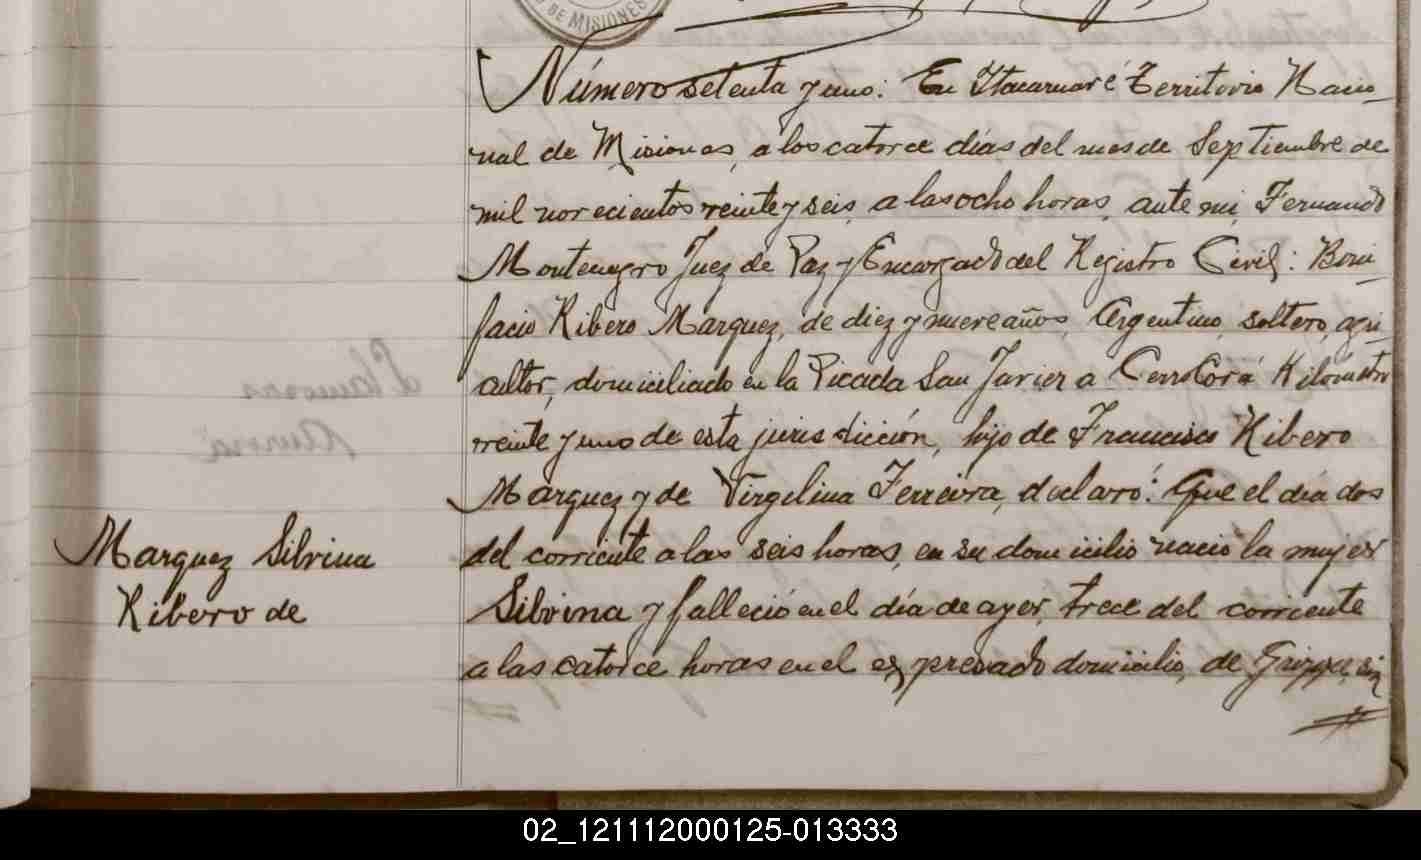 DE MISIONES
Número setenta y uno: En Itacaruaré Territorio Nacio
nal de Misiones, a los catorce días del mes de Septiembre de
mil novecientos veinte y seis, a las ocho horas, ante mi, Fernando
Montenegro Juez de Paz y Encargado del Registro Civil: Boni
facio Ribero Marquez, de diez y nueve años, Argentino, soltero, agri
cultor, domiciliado en la Picada San Javier a Cerro Corá Kilómetro
veinte y uno de esta jurisdicción, hijo de Francisco Ribero
Marquez y de Virgilina Ferreira, declaró: Que el día dos
del corriente a las seis horas, en su domicilio nació la mujer
Marquez Silvina
Ribero de
Silvina y falleció en el día de ayer, trece del corriente
a las catorce horas en el expresado domicilio, de Grippe, sin
02_121112000125-013333